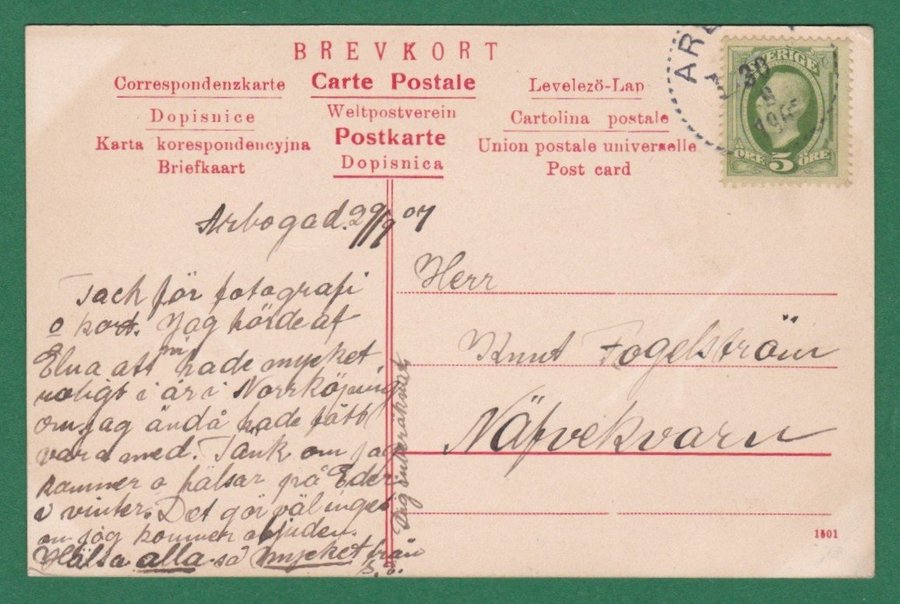 BREVKORT
Correspondenzkarte
Dopisnice
Karta korespondencyjna
Briefkaart
Carte Postale
Weltpostverein
Postkarte
Dopisnica
Levelező-Lap
Cartolina postale
Union postale universelle
Post card
SVERIGE
5
ÖRE ÖRE
30
9
Arboga d. 29/9 07
Tack för fotografi
o kort. Jag hörde af
Elna att ni hade mycket
roligt i år i Norrköping
om jag ändå hade fått
vara med. Tänk om jag
kommer o hälsar på Eder
i vinter. Det gör väl inget
om jag kommer objuden.
Hälsa alla så mycket från
Herr
Knut Fogelström
Näfvekvarn
1501